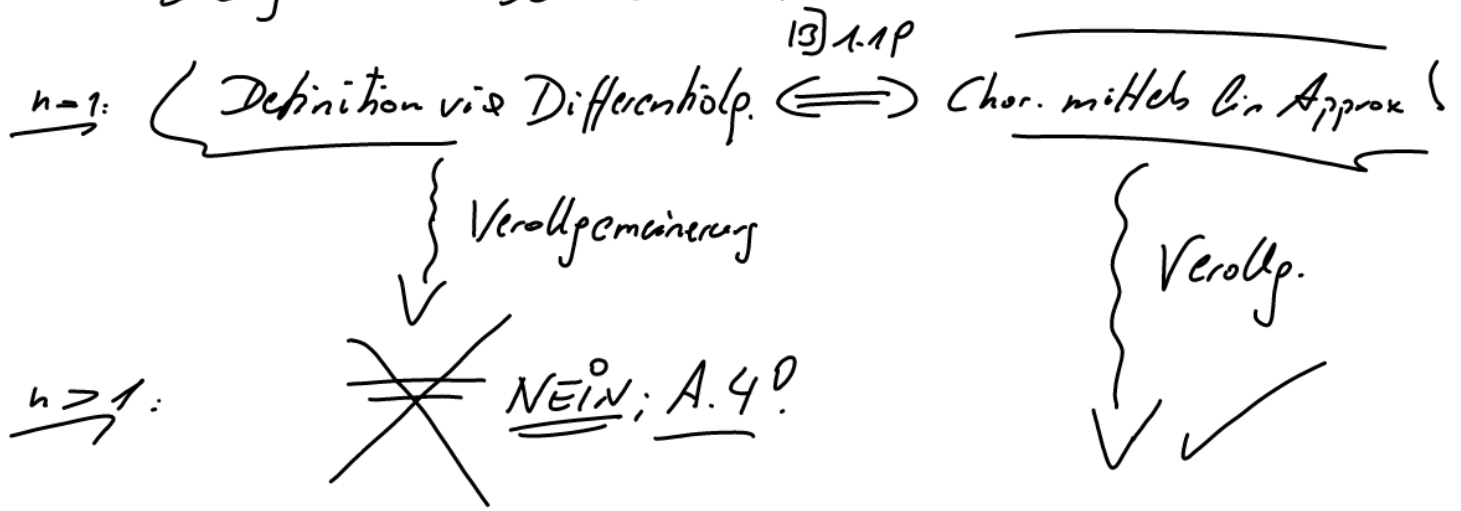 [3] 1.19
n=1: Definition via Differentialq. ⟺ Char. mittels lin Approx
Verallgemeinerung Verallg.
n>1: NEIN; A.4! ✓